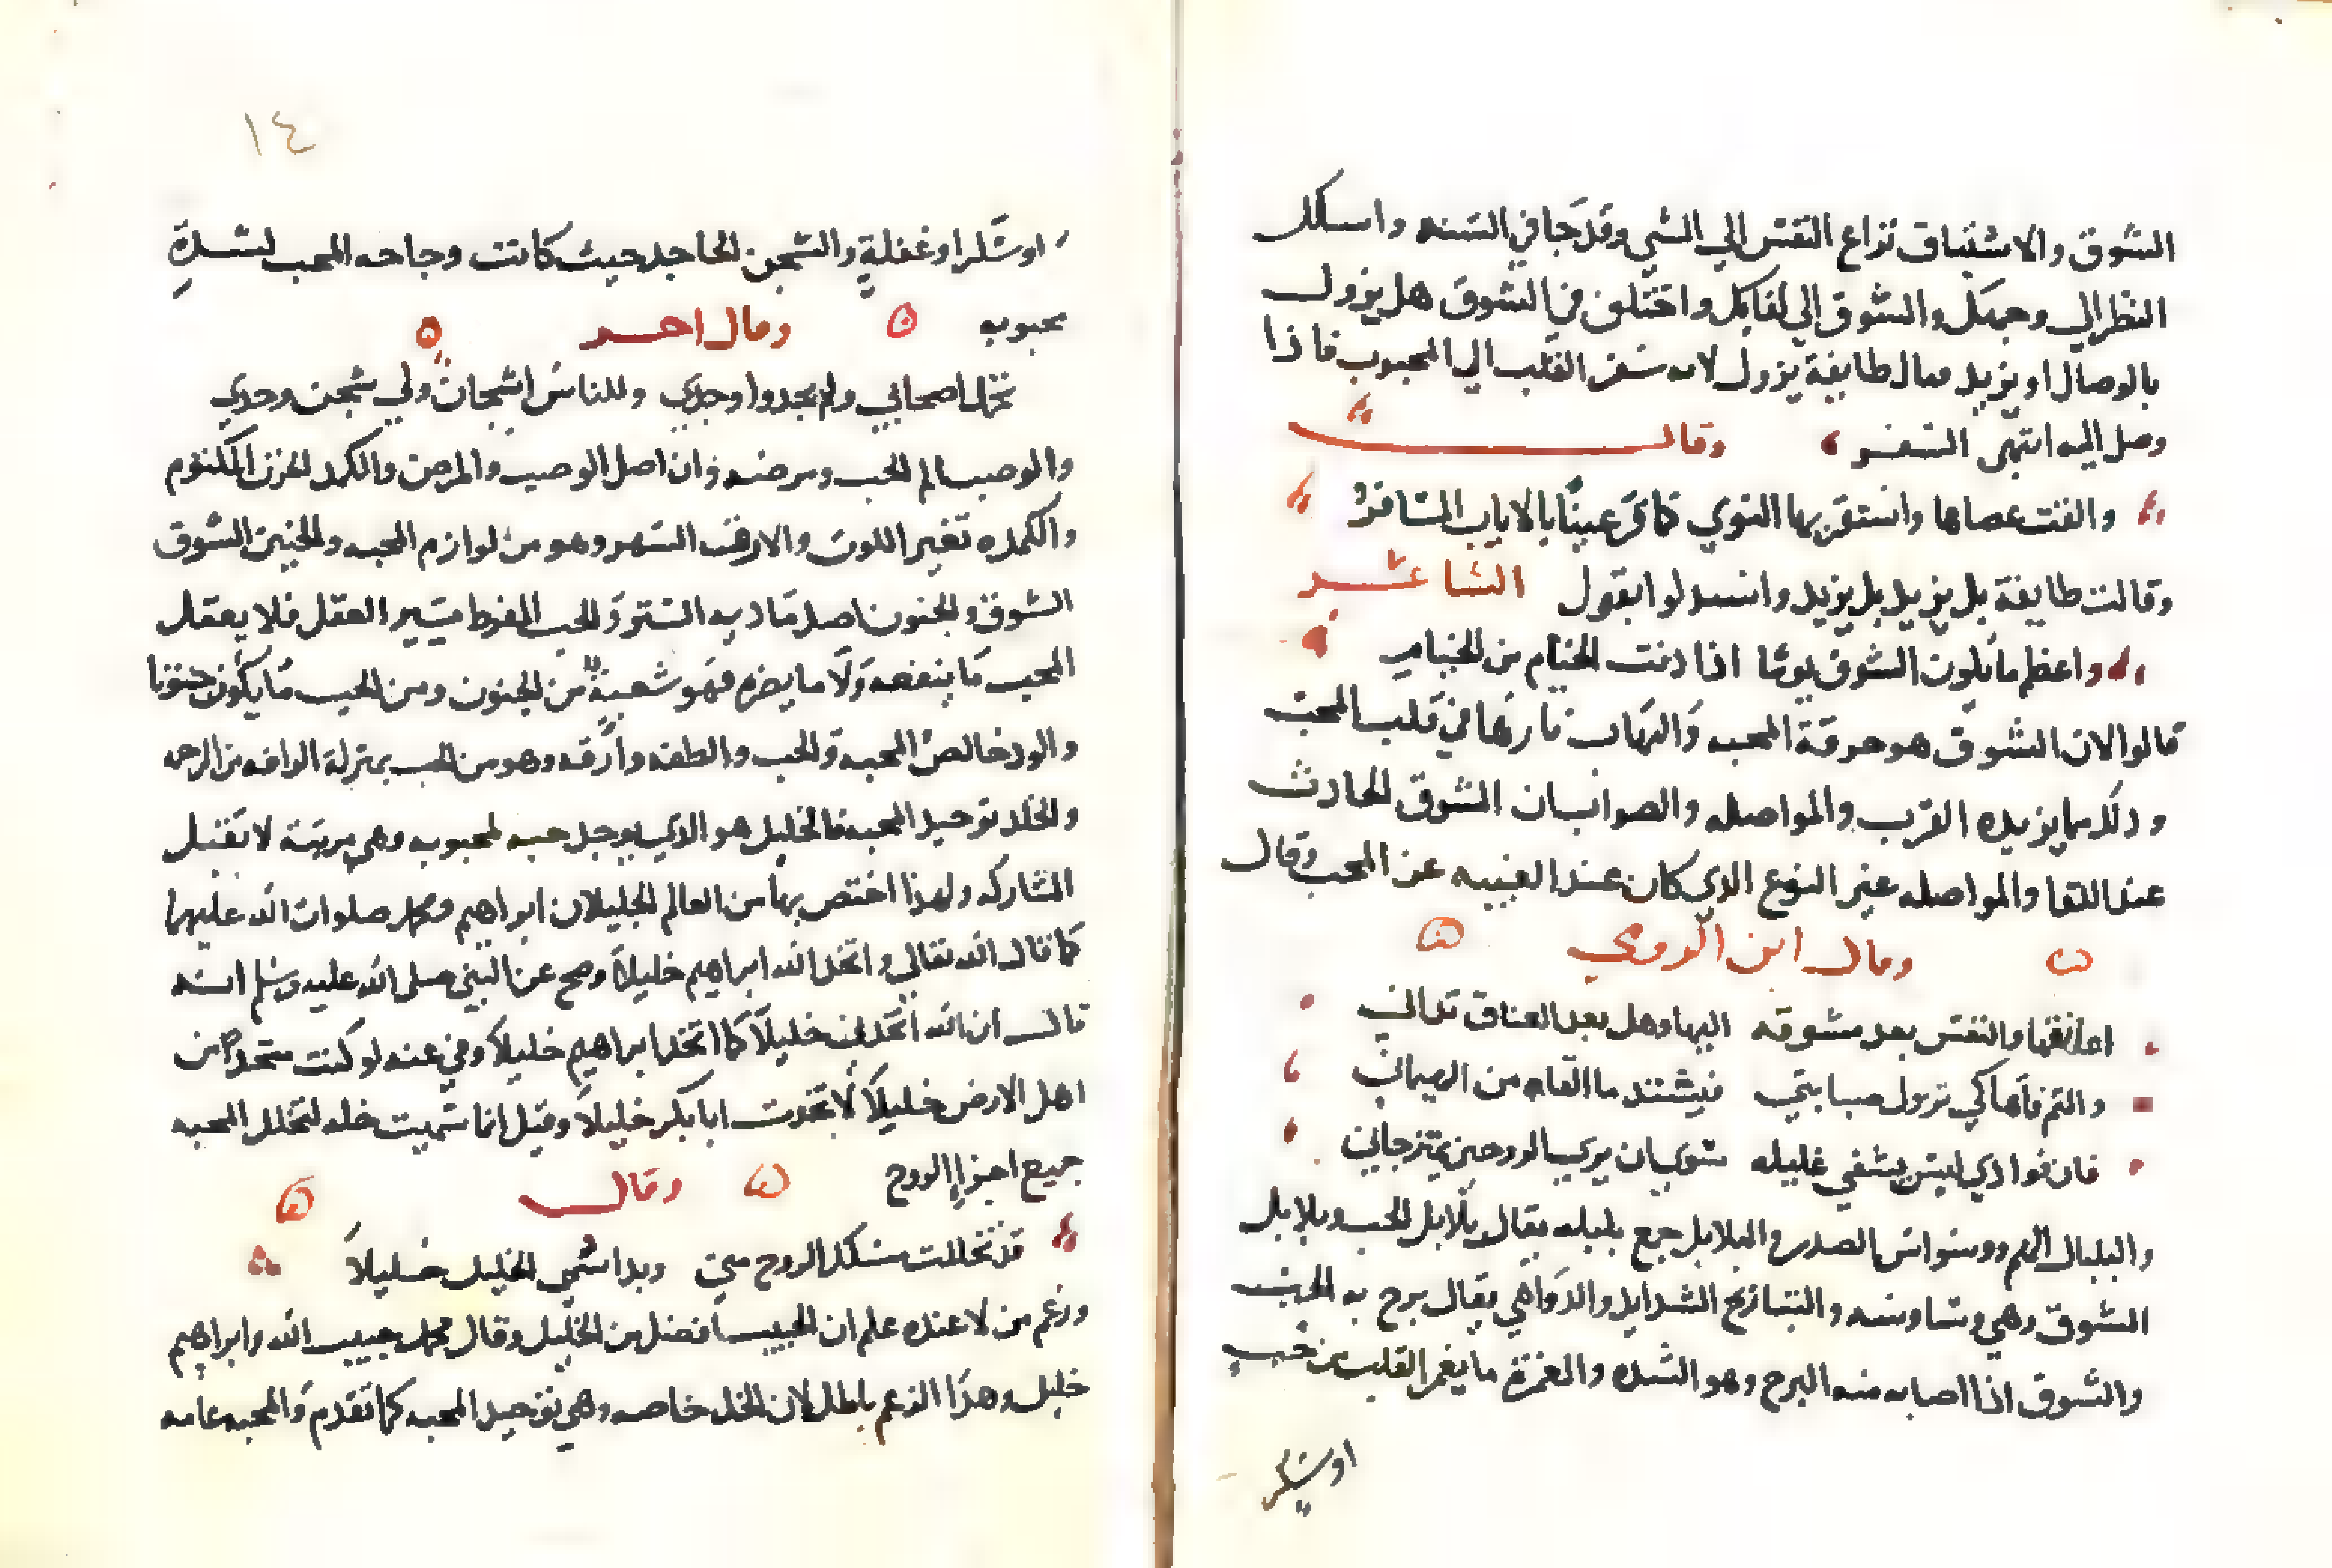 الشوق والاشتياق نزاع النفس الي الشي وقد جا في السنه واسلك
النظر الي وجهك والشوق الي لقايك واختلف في الشوق هل يزول
بالوصال او يزيد فقال طايفة يزول لانه سفر القلب الي المحبوب فاذا
وصل اليه انتهى السفر وقال
والقت عصاها واستقر بها النوي كما قر عينا بالاياب المسافر
وقالت طايفة بل يزيد بل يزيد وانشدلوا بقول الشاعر
واعظم ما يكون الشوق يوما اذا دنت الخيام من الخيام
قالوا لان الشوق هو حرقة المحبه والتهاب نارها في قلب المحب
وذلك مما يزيده القرب والمواصله والصواب ان الشوق الحادث
عند اللقا والمواصله غير النوع الذي كان عند الغيبه عن المحب وقال
وقال ابن الرومي
اعانقها والنفس بعد مشوقه اليها وهل بعد العناق تداني
والثم فاها كي تزول صبابتي فيشتد ما القاه من الهيمان
فان فوادي ليس يشفي غليله سوي ان يري الروحين يمتزجان
والبلبال الهم ووسواس الصدر والبلابل جمع بلبله يقال بلابل الحب وبلابل
الشوق وهي وساوسه والتباريح الشدايد والدواهي يقال برح به الحب
والشوق اذا اصابه منه البرح وهو الشده والغمرة ما يغمر القلب من حب
اوسكر
١٤
او سكر او غفلة والشجن الحاجه حيث كانت وحاجه المحب لشدة
محبوبه وقال احر
تحمل اصحابي ولم يجدوا وجدي وللناس اشجان ولي شجن وحدي
والوصب الم الحب ومرضه فان اصل الوصب والمرض والكمد الحزن المكتوم
والكمده تغير اللون والارق السهر وهو من لوازم المحبه والحنين الشوق
الشوق والجنون اصل مادبه الستر والحب المفرط يستر العقل فلا يعقل
المحب ما ينفعه ولا ما يضره فهو شعبة من الجنون ومن الحب ما يكون جنونا
والود خالص المحبه والحب والطفه وارقه وهو من الحب بمنزلة الرافه من الرحمه
والخله توحيد المحبه فالخليل هو الذي يوحد حبه لمحبوبه وهي مرتبة لا تقبل
المشاركه ولهذا اختص بها من العالم الخليلان ابراهيم ومحمد صلوات الله عليهما
كما قال الله تعالي واتخذ الله ابراهيم خليلا وصح عن النبي صلى الله عليه وسلم انه
قال ان الله اتخذني خليلا كما اتخذ ابراهيم خليلا وفي عنه لو كنت متخدا من
اهل الارض خليلا لاتخذت ابا بكر خليلا وقيل انما سميت خله لتخلل المحبه
جميع اجزا الروح وقال
قد تخللت مسلك الروح مني وبدا سمي الخليل خليلا
وزعم من لا عنده علم ان الحبيب افضل من الخليل وقال محمد حبيب الله وابراهيم
خليل وهذا الزعم باطل لان الخله خاصه وهي توحيد المحبه كما تقدم والمحبه عامه